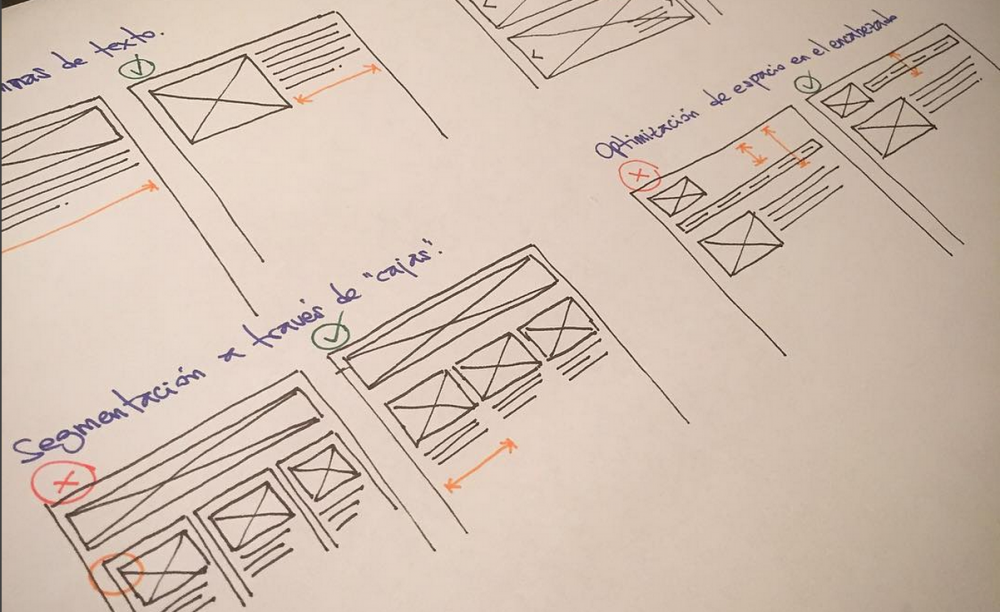 de texto.
Optimización de espacio en el encabezado
Segmentación a través de "cajas".